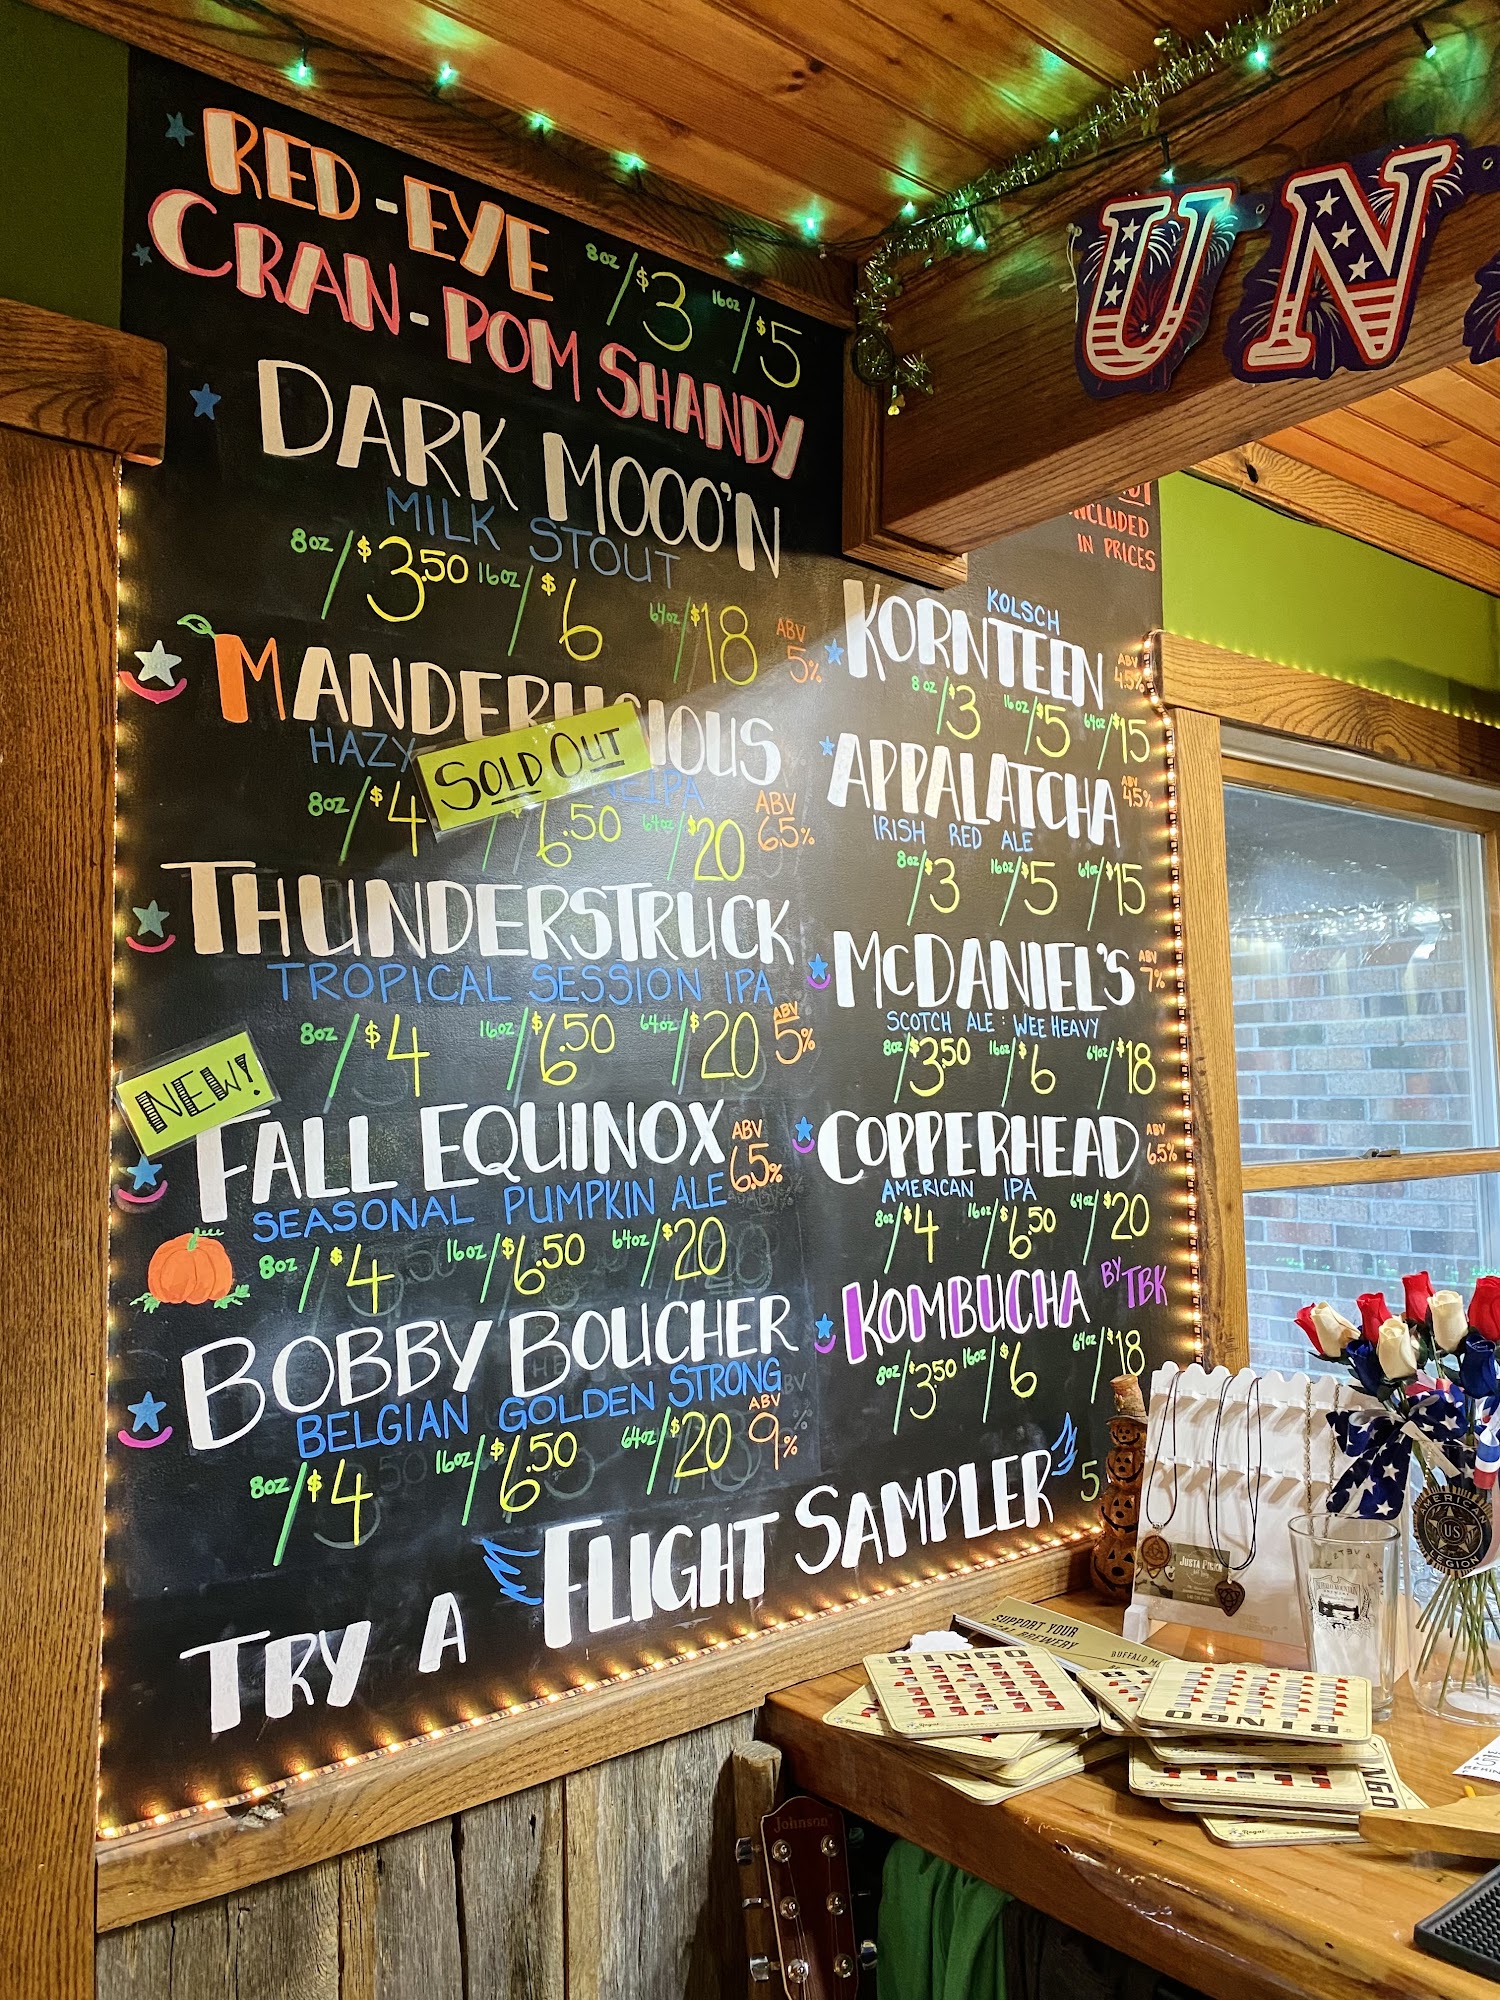 RED-EYE 8oz/$3 16oz/$5
CRAN-POM SHANDY
DARK MOOO'N
MILK STOUT
8oz/$3.50 16oz/$6 64oz/$18 ABV 5%
HAZY
SOLD OUT
8oz/$4 $6.50 64oz/$20 ABV 6.5%
THUNDERSTRUCK
TROPICAL SESSION IPA
8oz/$4 16oz/$6.50 64oz/$20 ABV 5%
NEW!
FALL EQUINOX ABV 6.5%
SEASONAL PUMPKIN ALE
8oz/$4 16oz/$6.50 64oz/$20
BOBBY BOUCHER
BELGIAN GOLDEN STRONG
8oz/$4 16oz/$6.50 64oz/$20 ABV 9%
TRY A FLIGHT SAMPLER 5
INCLUDED
IN PRICES
KOLSCH
KORNTEEN ABV 4.5%
8oz/$3 16oz/$5 64oz/$15
APPALATCHA ABV 4.5%
IRISH RED ALE
8oz/$3 16oz/$5 64oz/$15
McDANIEL'S ABV 7%
SCOTCH ALE: WEE HEAVY
8oz/$3.50 16oz/$6 64oz/$18
COPPERHEAD ABV 6.5%
AMERICAN IPA
8oz/$4 16oz/$6.50 64oz/$20
KOMBUCHA BY TBK
8oz/$3.50 16oz/$6 64oz/$18
UN
AMERICAN
US
LEGION
SUPPORT YOUR
BREWERY
BUFFALO
BINGO
BINGO
Johnson